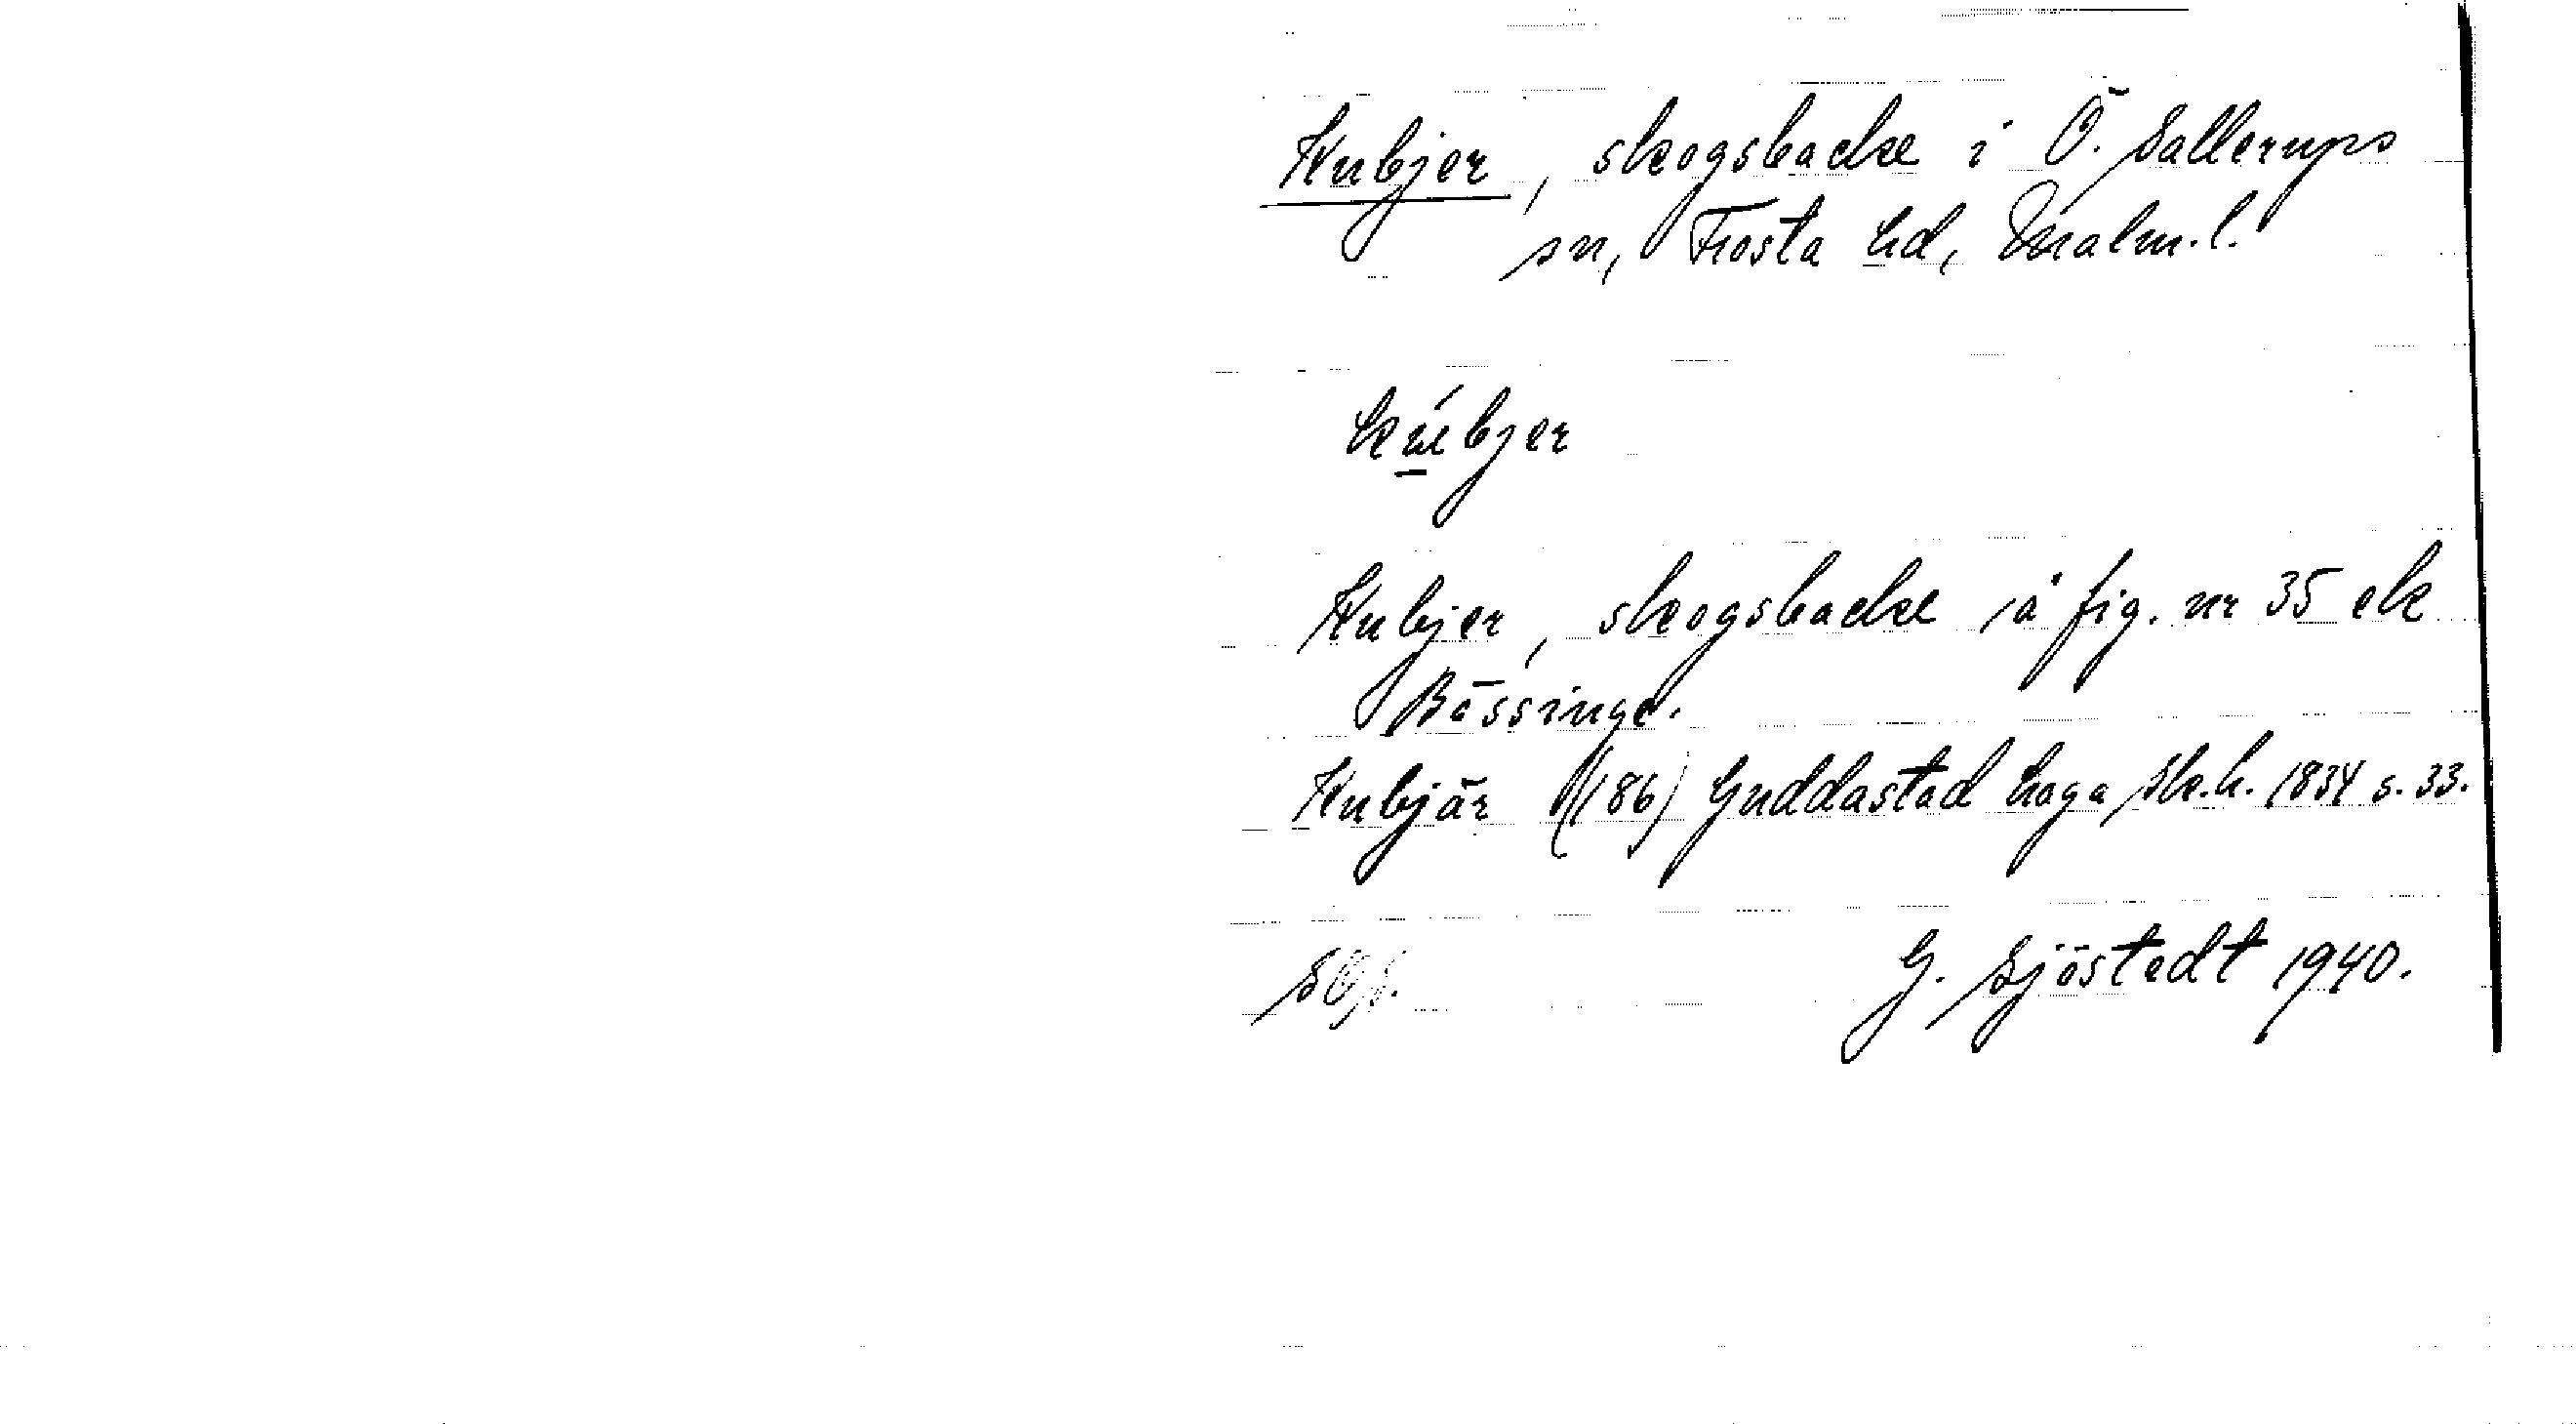 Kubjer, skogsbacke i Ö. Sallerups
sn, Frosta hd, Malm.l.
kúbjer
Kubjer, skogsbacke å fig. nr 35 ek
Bässinge.
Kubjär (186) Guddastad haga sk.h. 1834 s. 33.
G. Sjöstedt 1940.